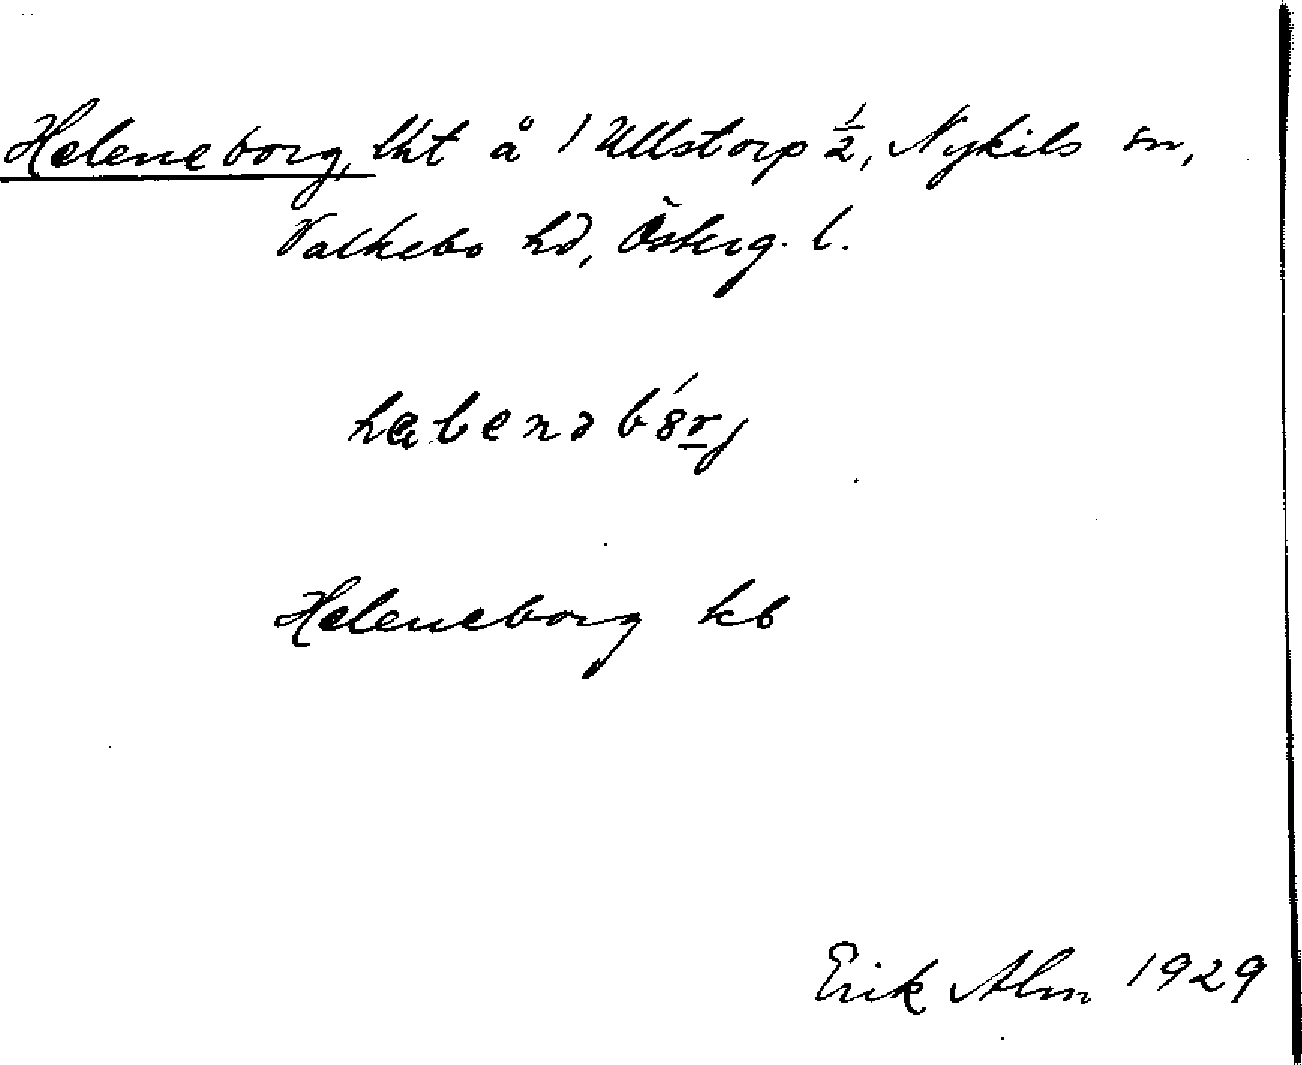 Heleneborg, lht å 1 Ullstorp ½, Nykils sn,
Valkebo hd, Österg. l.
Heleneborg kb
Erik Alm 1929